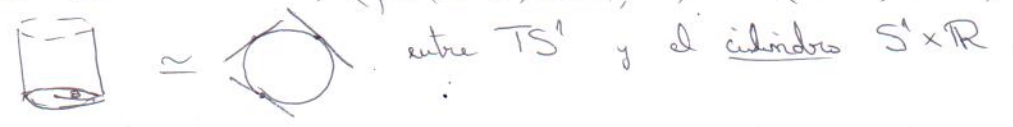 ≃ entre TS¹ y el cilindro S¹×ℝ